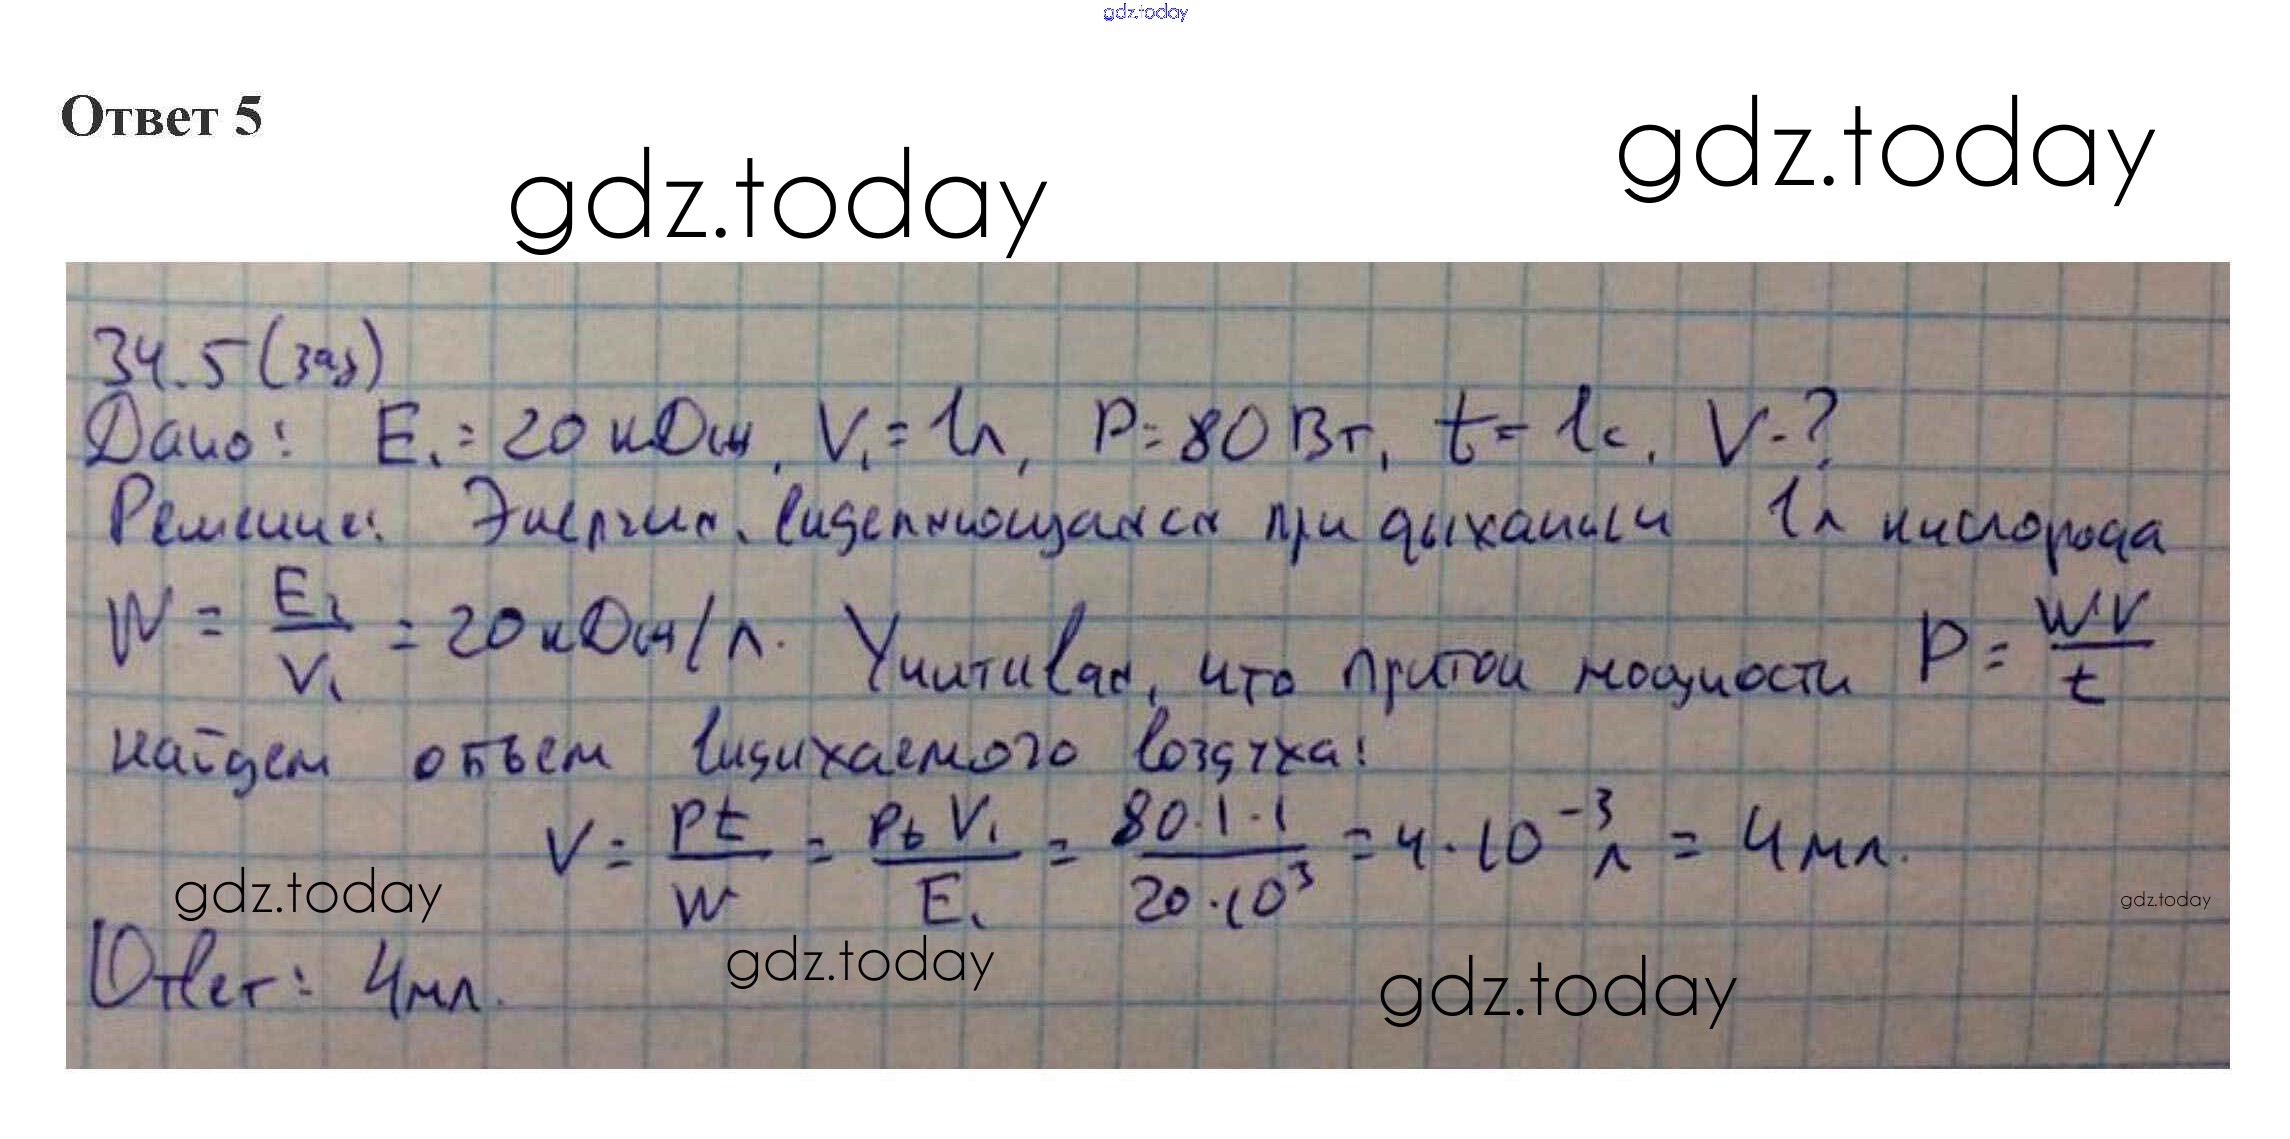 gdz.today
Ответ 5
gdz.today
gdz.today
34.5 (зад)
Дано: E₁ = 20 кДж, V₁ = 1л, P = 80 Вт, t = 1с. V - ?
Решение: Энергия, выделяющаяся при дыхании 1л кислорода
W = E₁/V₁ = 20 кДж/л. Учитывая, что при той мощности P = W·V/t
найдем объем вдыхаемого воздуха:
V = Pt/W = PtV₁/E₁ = 80·1·1/20·10³ = 4·10⁻³ л = 4 мл.
gdz.today
gdz.today
Ответ: 4 мл.
gdz.today
gdz.today